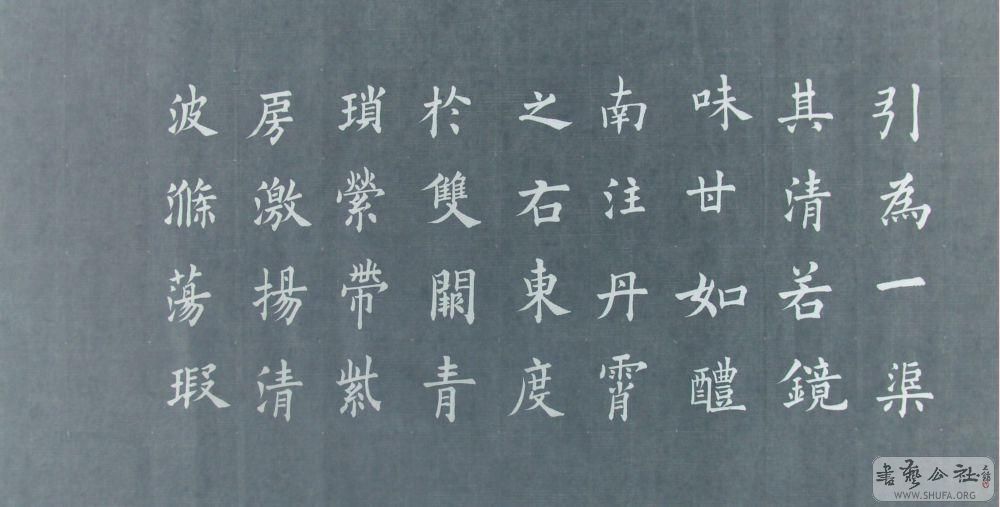 引為一渠
其清若鏡
味甘如醴
南注丹霄
之右東度
於雙闕青
瑣縈帶紫
房激揚清
波滌蕩瑕
書藝公社
WWW.SHUFA.ORG